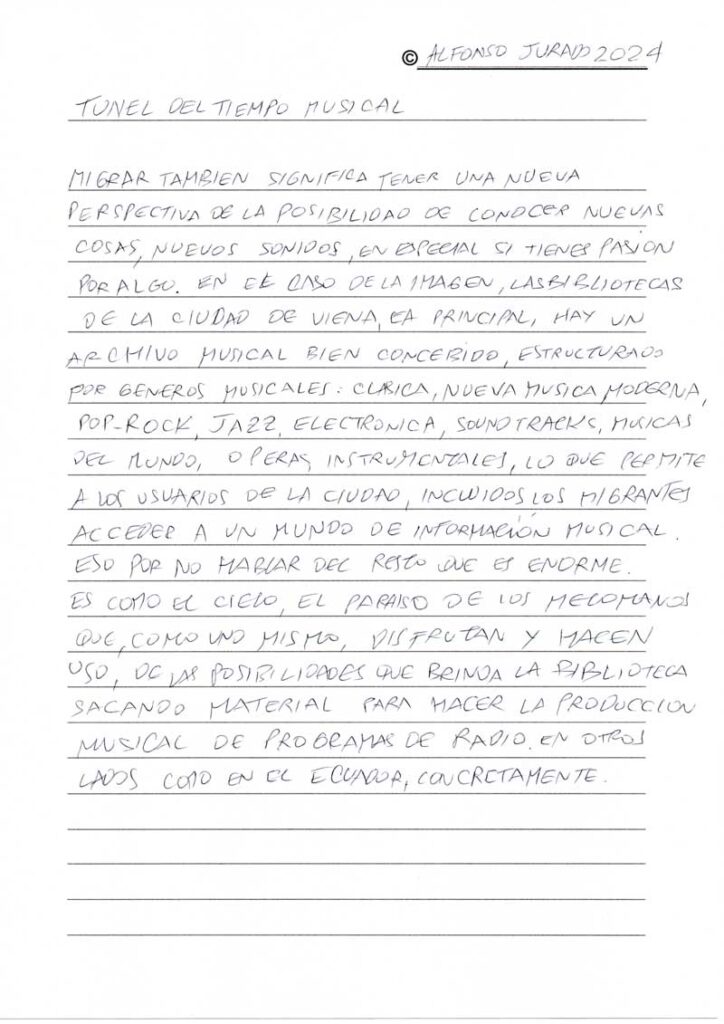 © ALFONSO JURADO 2024
TUNEL DEL TIEMPO MUSICAL
MIGRAR TAMBIEN SIGNIFICA TENER UNA NUEVA
PERSPECTIVA DE LA POSIBILIDAD DE CONOCER NUEVAS
COSAS, NUEVOS SONIDOS, EN ESPECIAL SI TIENES PASION
POR ALGO. EN EL CASO DE LA IMAGEN, LAS BIBLIOTECAS
DE LA CIUDAD DE VIENA, LA PRINCIPAL, HAY UN
ARCHIVO MUSICAL BIEN CONCEBIDO, ESTRUCTURADO
POR GENEROS MUSICALES: CLASICA, NUEVA MUSICA, MODERNA,
POP-ROCK, JAZZ, ELECTRONICA, SOUNDTRACKS, MUSICAS
DEL MUNDO, OPERAS, INSTRUMENTALES, LO QUE PERMITE
A LOS USUARIOS DE LA CIUDAD, INCLUIDOS LOS MIGRANTES
ACCEDER A UN MUNDO DE INFORMACIÓN MUSICAL.
ESO POR NO HABLAR DEL RESTO QUE ES ENORME.
ES COMO EL CIELO, EL PARAISO DE LOS MELOMANOS
QUE, COMO UNO MISMO, DISFRUTAN Y HACEN
USO, DE LAS POSIBILIDADES QUE BRINDA LA BIBLIOTECA
SACANDO MATERIAL PARA HACER LA PRODUCCION
MUSICAL DE PROGRAMAS DE RADIO. EN OTROS
LADOS COMO EN EL ECUADOR, CONCRETAMENTE.